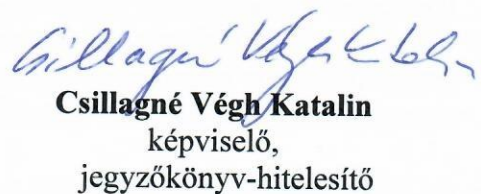 Csillagné Végh Katalin
Csillagné Végh Katalin
képviselő,
jegyzőkönyv-hitelesítő